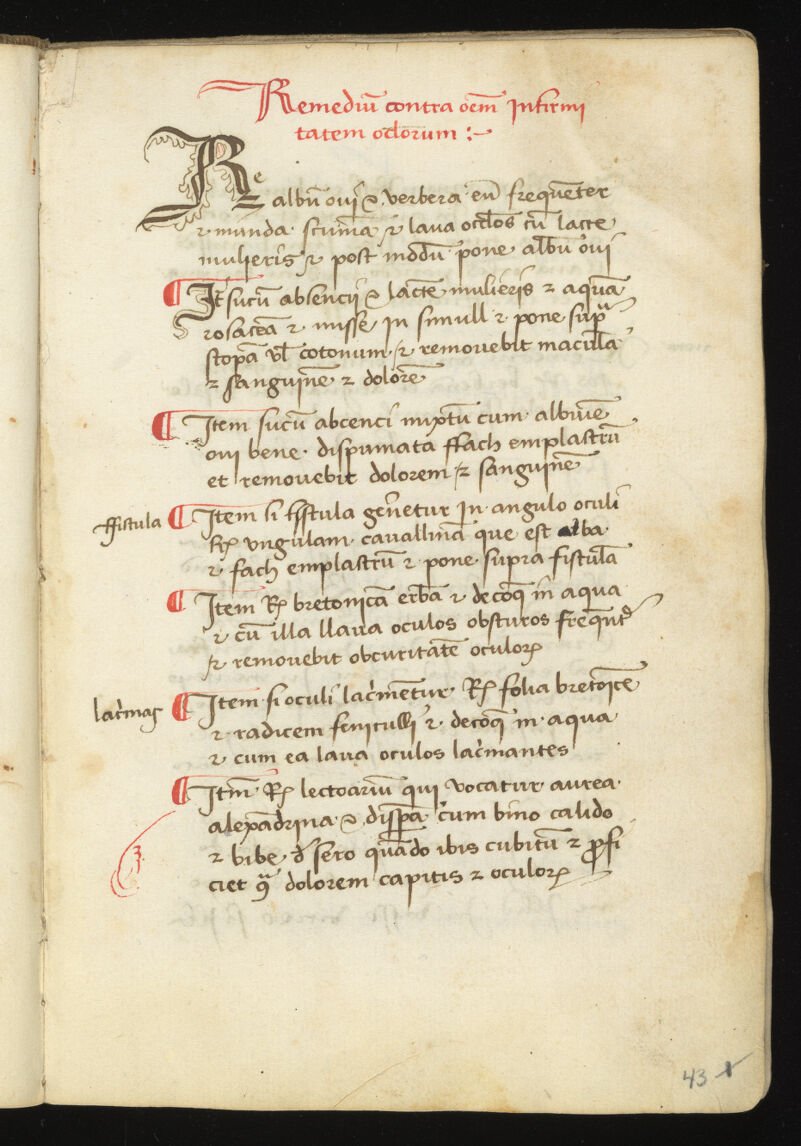 Remediū contra oēm Infirmi
tatem oclorum :~
Re
albū oui ⁊ verbera eū frequēter
⁊ munda scumā ⁊ laua occlōs cū lacte
mulieris ⁊ post modū pone albū oui
Itē sucū absencii ⁊ lactē mulieris ⁊ aquā
rosaceā ⁊ misse in simull ⁊ pone supᵃ
stopā vl̄ cotonum ⁊ remouebit maculā
⁊ sanguinē ⁊ dolorē
Item sucū abcenci mixtū cum albuīe
oui bene dispumata ffach emplastrū
et remouebit dolorem ⁊ sanguinē
ffistula
Item si fistula gen̄etur in angulo oculi
℞ vngulam cauallinā que est alba
⁊ fach emplastrū ⁊ pone supra fistulā
Item ℞ bretonicā erbā ⁊ decoq̄ in aqua
⁊ cū illa llaua oculos obscuros frequēt̄
⁊ remouebit obcuritatē oculoꝝ
lac̄mas
Item si oculi lac̄mētur ℞ folia bretoīce
⁊ radicem feniculli ⁊ decoq̄ in aqua
⁊ cum ea laua oculos lac̄mantes
Itm̄ ℞ lectoariū qui vocatur aurea
alexādrina ⁊ disꝑa cum bino calido
⁊ bibe d̄ sero quādo ibis cubitū ⁊ ꝓfi
ciet ꝯᵃ dolorem capitis ⁊ oculoꝝ
43